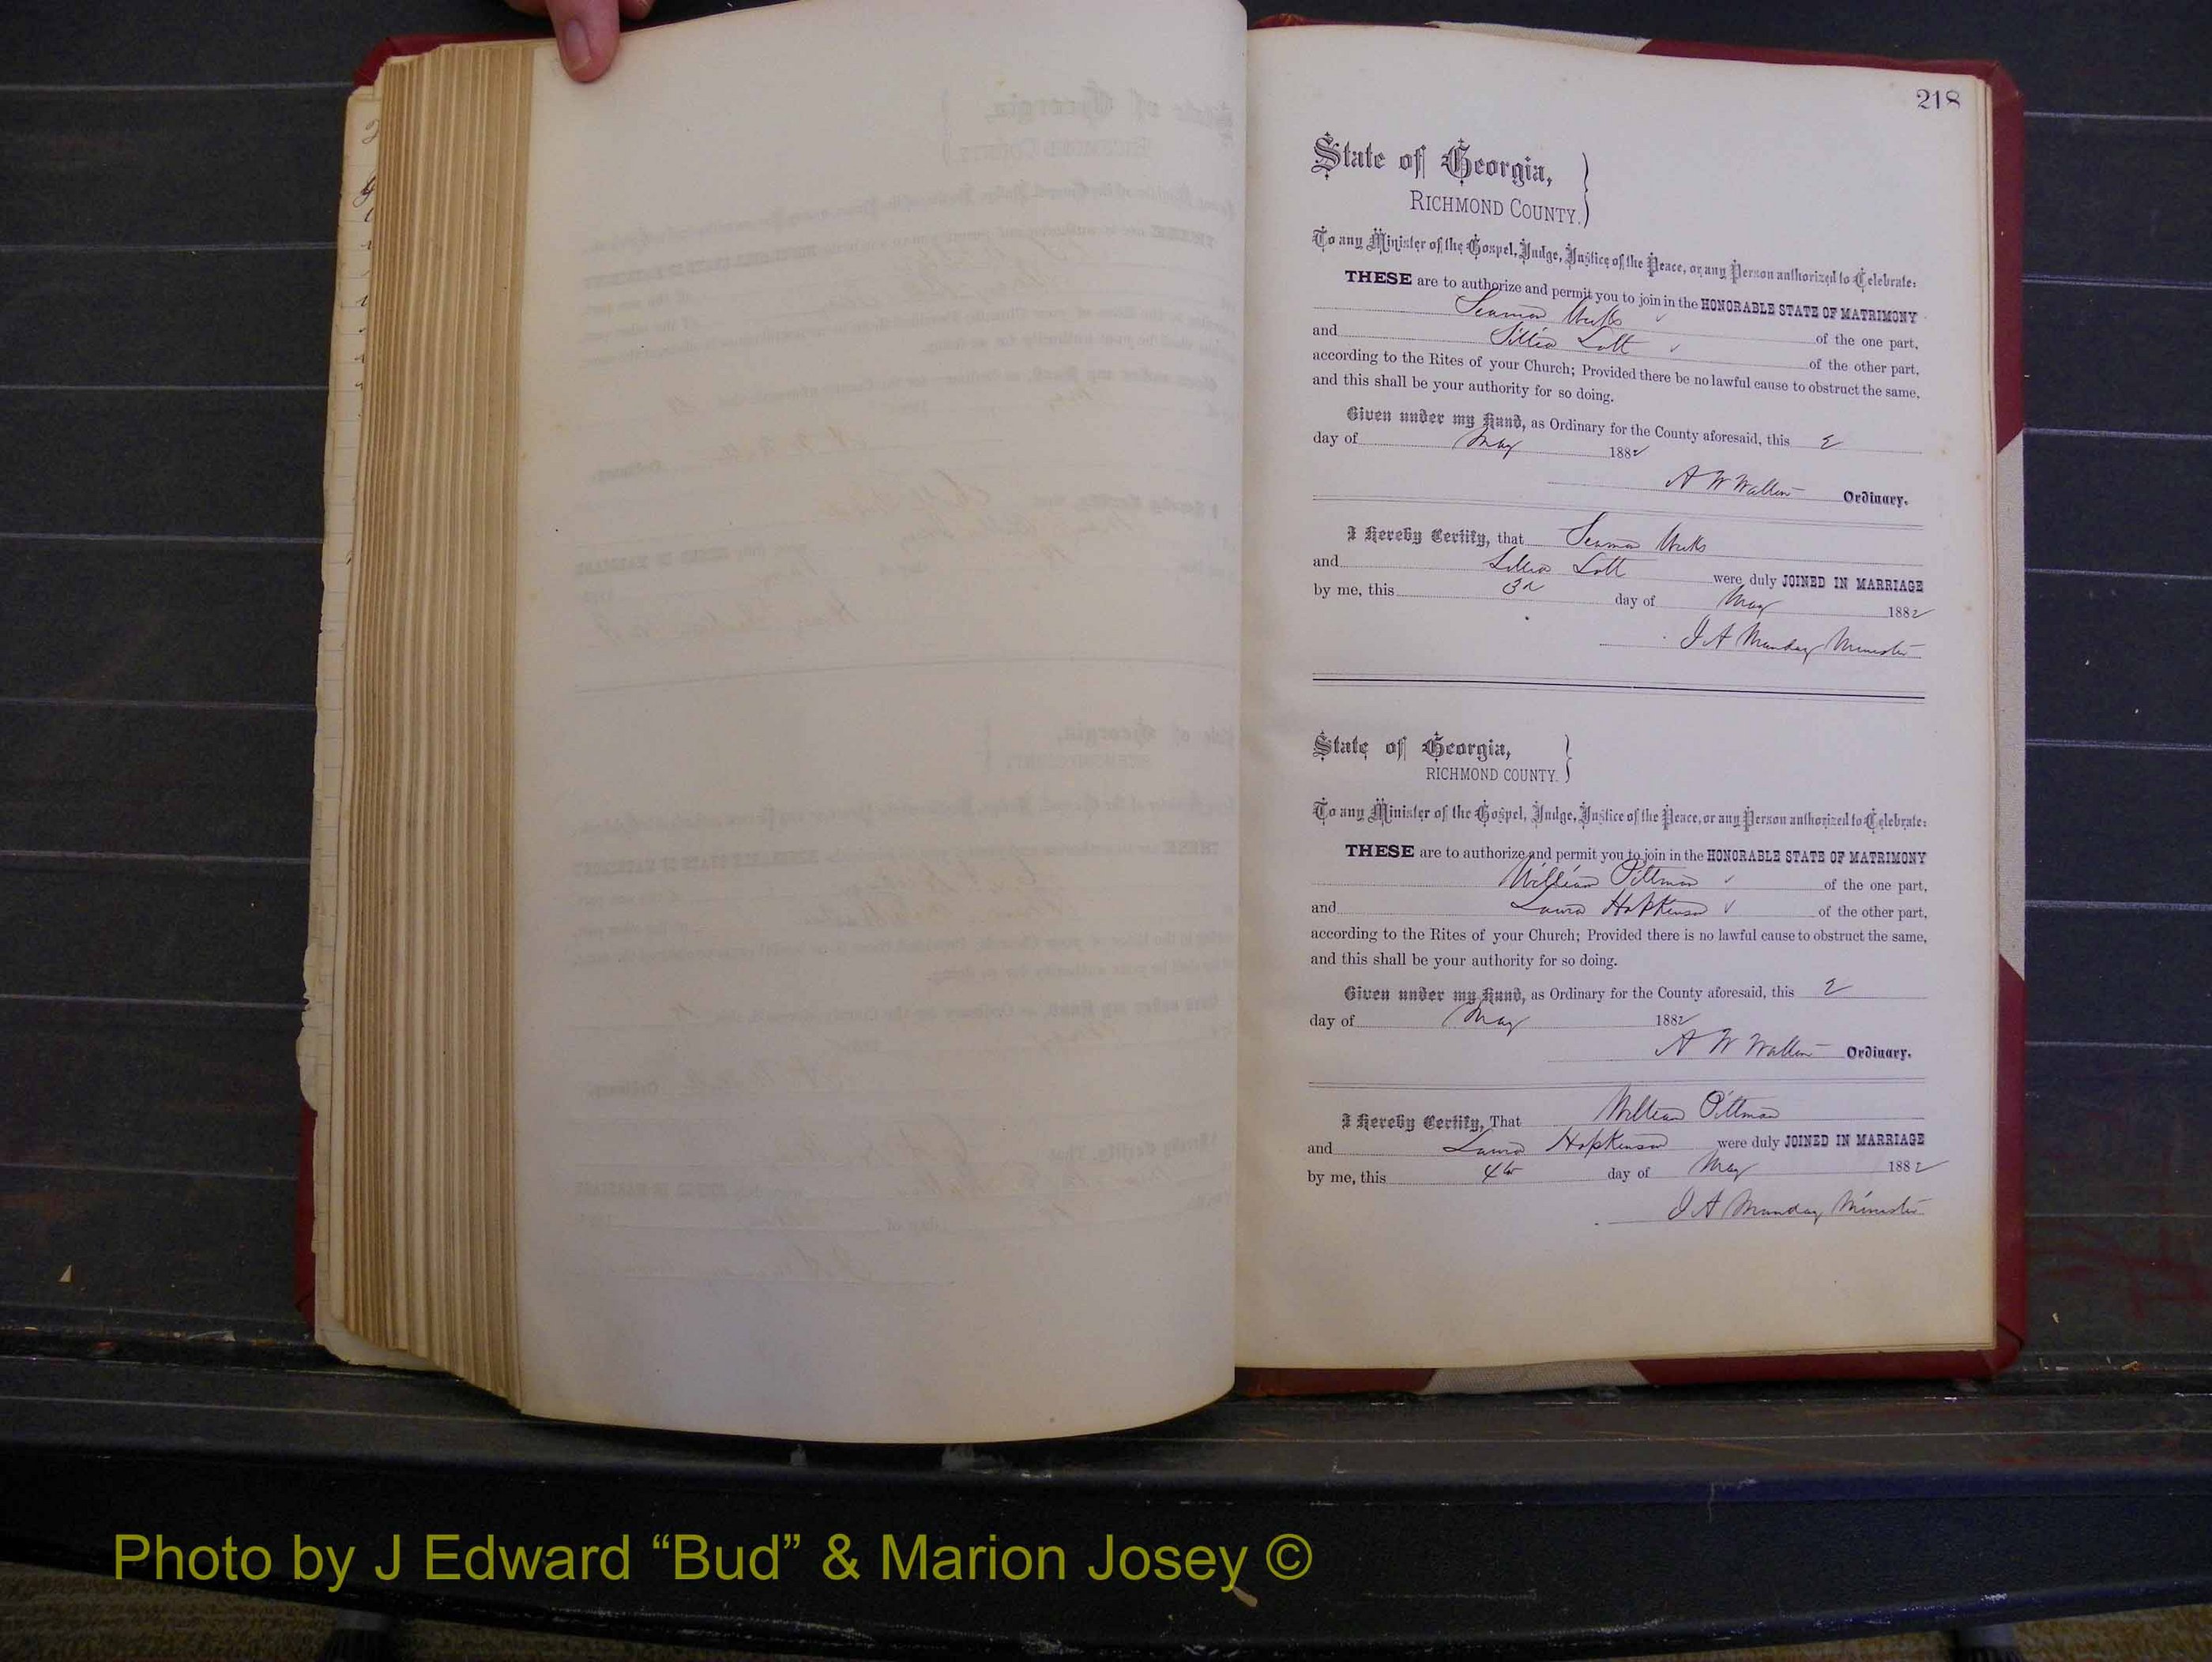 218
State of Georgia,
RICHMOND COUNTY.
To any Minister of the Gospel, Judge, Justice of the Peace, or any Person authorized to Celebrate:
THESE are to authorize and permit you to join in the HONORABLE STATE OF MATRIMONY
of the one part,
and Lillia Lott of the other part,
according to the Rites of your Church; Provided there be no lawful cause to obstruct the same,
and this shall be your authority for so doing.
Given under my Hand, as Ordinary for the County aforesaid, this 2
day of May 1882
A W Walton Ordinary.
I Hereby Certify, that
and Lillia Lott were duly JOINED IN MARRIAGE
by me, this 3d day of May 1882
J A Munday Minister
State of Georgia,
RICHMOND COUNTY.
To any Minister of the Gospel, Judge, Justice of the Peace, or any Person authorized to Celebrate:
THESE are to authorize and permit you to join in the HONORABLE STATE OF MATRIMONY
William Pittman of the one part,
and Laura Hopkinson of the other part,
according to the Rites of your Church; Provided there is no lawful cause to obstruct the same,
and this shall be your authority for so doing.
Given under my Hand, as Ordinary for the County aforesaid, this 2
day of May 1882
A W Walton Ordinary.
I Hereby Certify, That William Pittman
and Laura Hopkinson were duly JOINED IN MARRIAGE
by me, this 4th day of May 1882
J A Munday Minister
Photo by J Edward “Bud” & Marion Josey ©